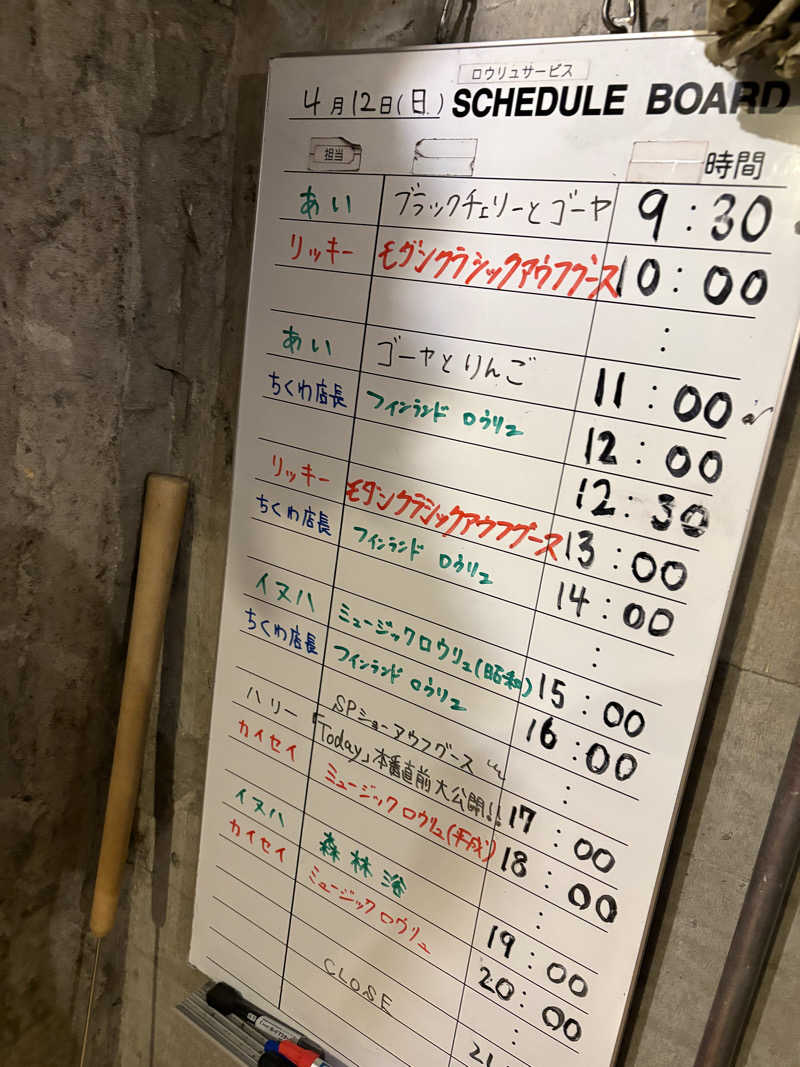 ロウリュサービス
4月12日(日.) SCHEDULE BOARD
担当 時間
あい ブラックチェリーとゴーヤ 9:30
リッキー モダンクラシックアウフグース 10:00
:
あい ゴーヤとりんご 11:00
ちくわ店長 フィンランド ロウリュ 12:00
12:30
リッキー モダンクラシックアウフグース 13:00
ちくわ店長 フィンランド ロウリュ 14:00
:
イヌハ ミュージックロウリュ(昭和) 15:00
ちくわ店長 フィンランド ロウリュ 16:00
:
ハリー SPショーアウフグース
「Today」本番直前大公開!! 17:00
カイセイ ミュージックロウリュ(平成) 18:00
:
イヌハ 森林浴 19:00
カイセイ ミュージックロウリュ 20:00
:
CLOSE 21